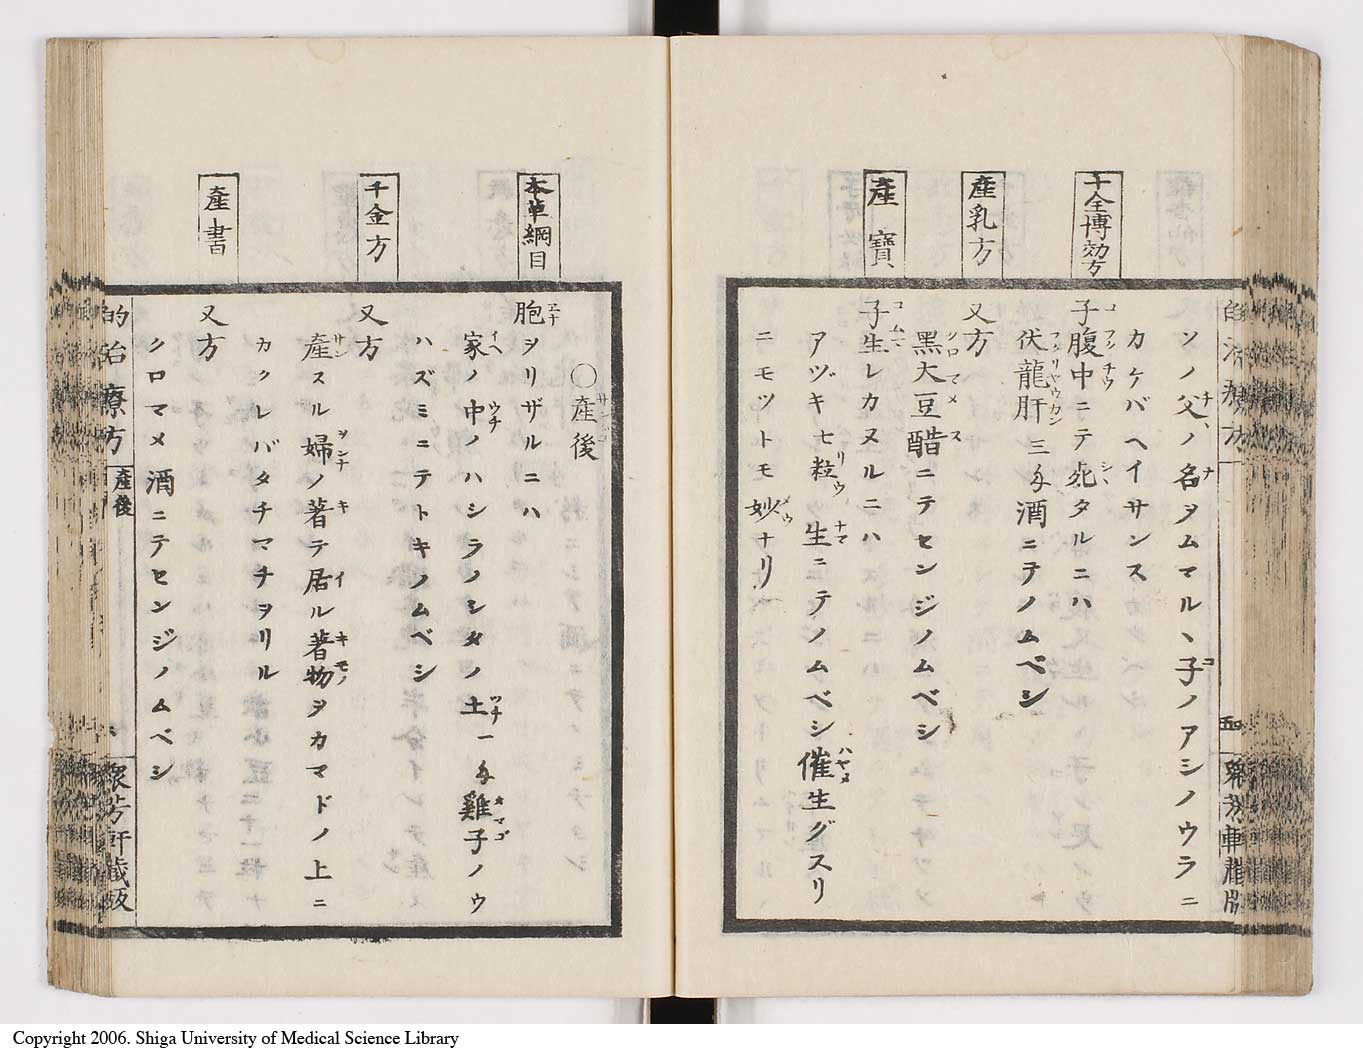 ソノ父ノ名ヲムマルヽ子ノアシノウラニ
カケバヘイサンスカ
十全博効方
子腹中ニテ死タルニハ
伏龍肝三匁酒ニテノムベシ
産乳方
又方
黒大豆醋ニテセンジノムベシ
産寶
子生レカヌルニハ
アヅキ七粒生ニテノムベシ催生グスリ
ニモツトモ妙ナリ
五
○産後
本草綱目
胞ヲリザルニハ
家ノ中ノハシラノシタノ土一匁雞子ノウ
ハズミニテトキノムベシ
千金方
又方
産スル婦ノ著テ居ル著物ヲカマドノ上ニ
カクレバタチマチヲリル
産書
又方
クロマメ酒ニテセンジノムベシ
的治療方 産後 衆芳軒蔵版
Copyright 2006. Shiga University of Medical Science Library